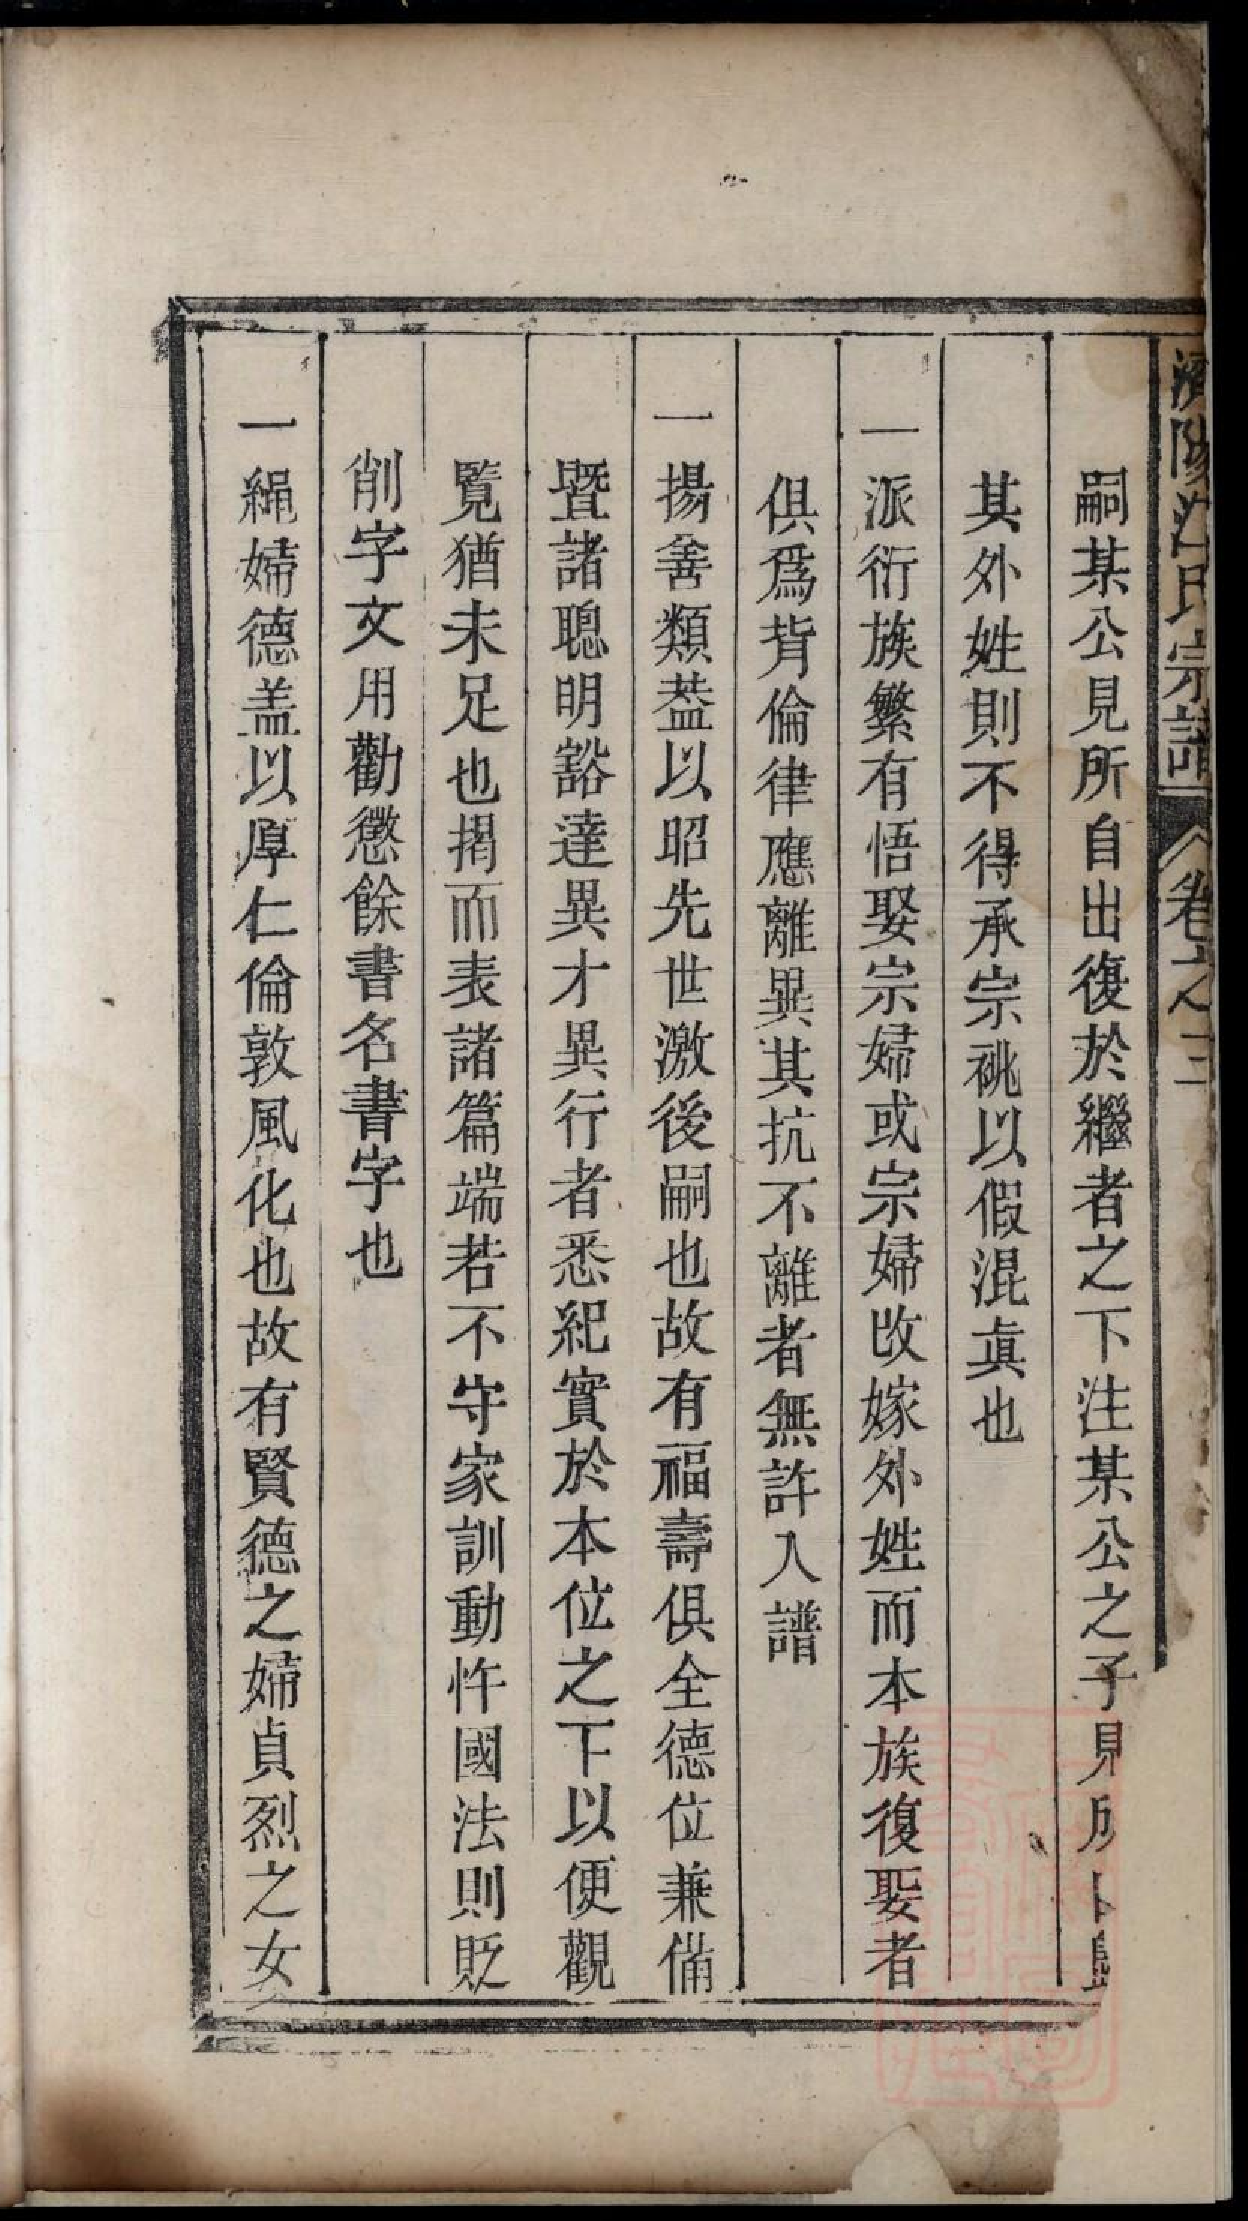 濟陽江氏宗譜 卷之三
嗣某公見所自出復於繼者之下注某公之子見所
其外姓則不得承宗祧以假混眞也
一派衍族繁有悟娶宗婦或宗婦改嫁外姓而本族復娶者
俱爲背倫律應離異其抗不離者無許入譜
一揚善類葢以昭先世激後嗣也故有福壽俱全德位兼備
暨諸聰明豁達異才異行者悉紀實於本位之下以便觀
覽猶未足也揭而表諸篇端若不守家訓動忤國法則貶
削字文用勸懲餘書名書字也
一繩婦德盖以厚仁倫敦風化也故有賢德之婦貞烈之女